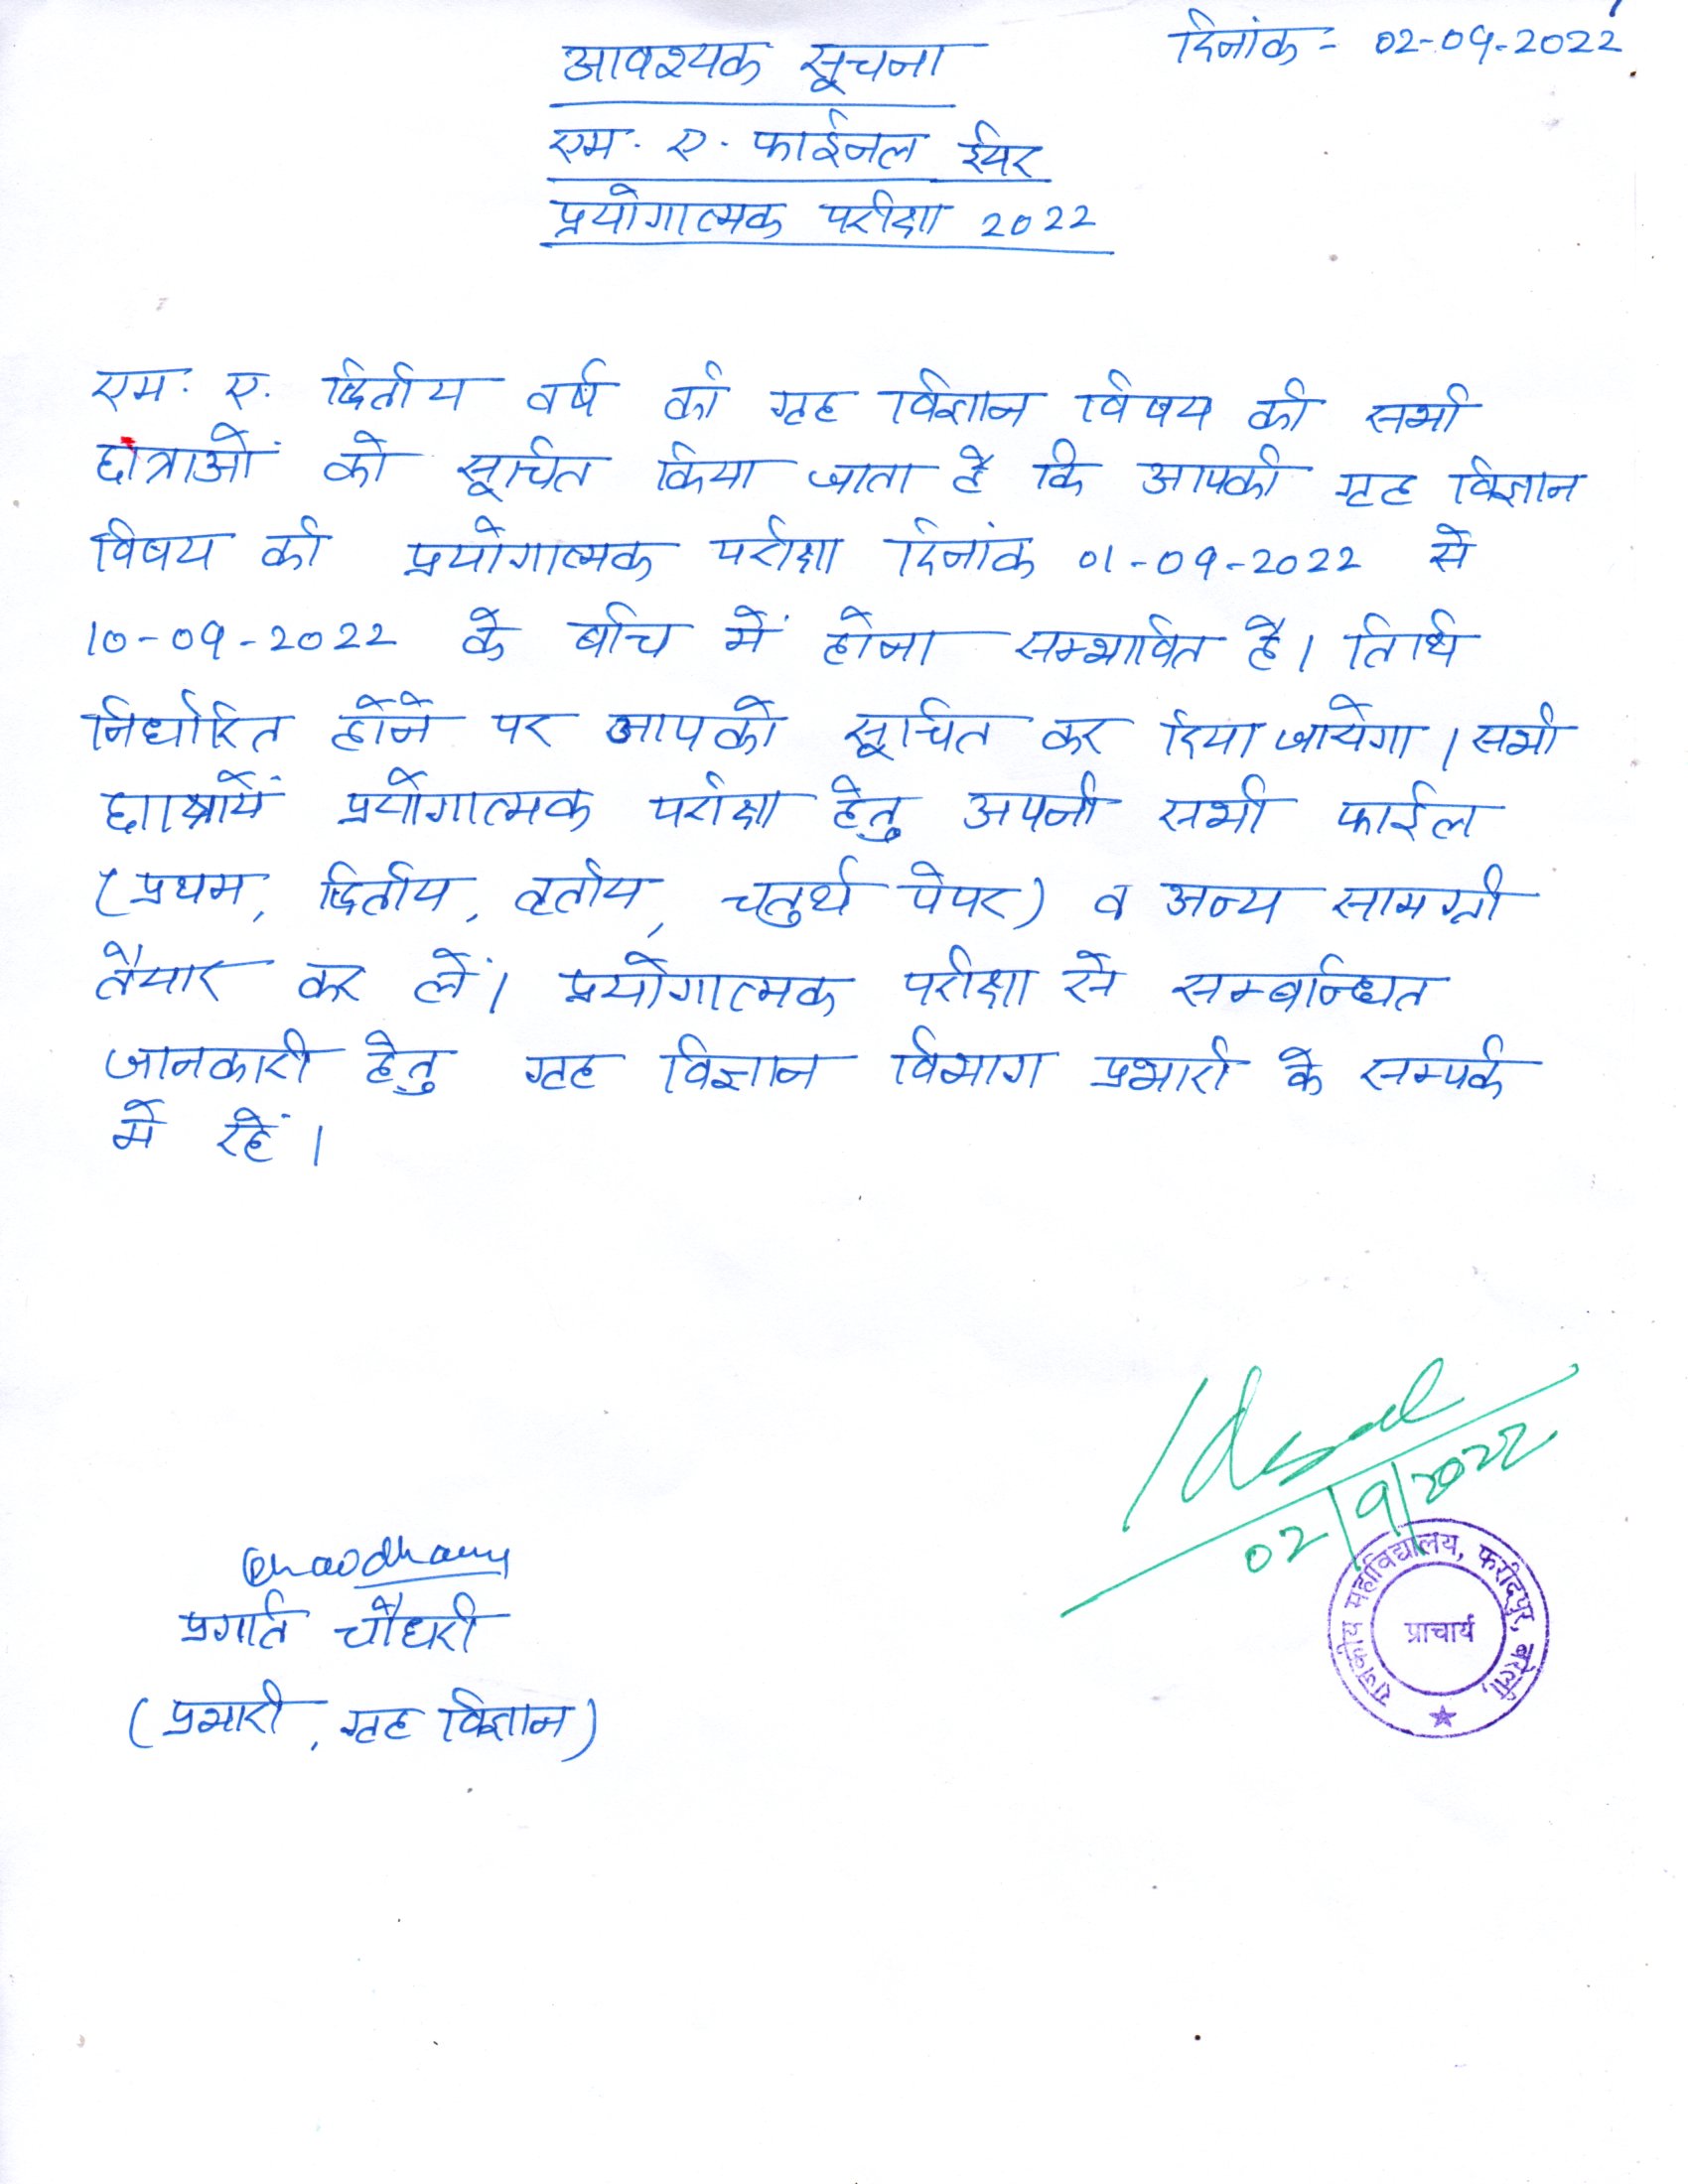 दिनांक - 02-09-2022
आवश्यक सूचना
एम. ए. फाईनल ईयर
प्रयोगात्मक परीक्षा 2022
एम. ए. द्वितीय वर्ष की गृह विज्ञान विषय की सभी
छात्राओं को सूचित किया जाता है कि आपकी गृह विज्ञान
विषय की प्रयोगात्मक परीक्षा दिनांक 01-09-2022 से
10-09-2022 के बीच में होना सम्भावित है। तिथि
निर्धारित होने पर आपको सूचित कर दिया जायेगा। सभी
छात्रायें प्रयोगात्मक परीक्षा हेतु अपनी सभी फाईल
(प्रथम, द्वितीय, तृतीय, चतुर्थ पेपर) व अन्य सामग्री
तैयार कर लें। प्रयोगात्मक परीक्षा से सम्बन्धित
जानकारी हेतु गृह विज्ञान विभाग प्रभारी के सम्पर्क
में रहें।
02/9/2022
Chaudhary
प्रगति चौधरी
(प्रभारी, गृह विज्ञान)
राजकीय महाविद्यालय, फरीदपुर, बरेली,
प्राचार्य